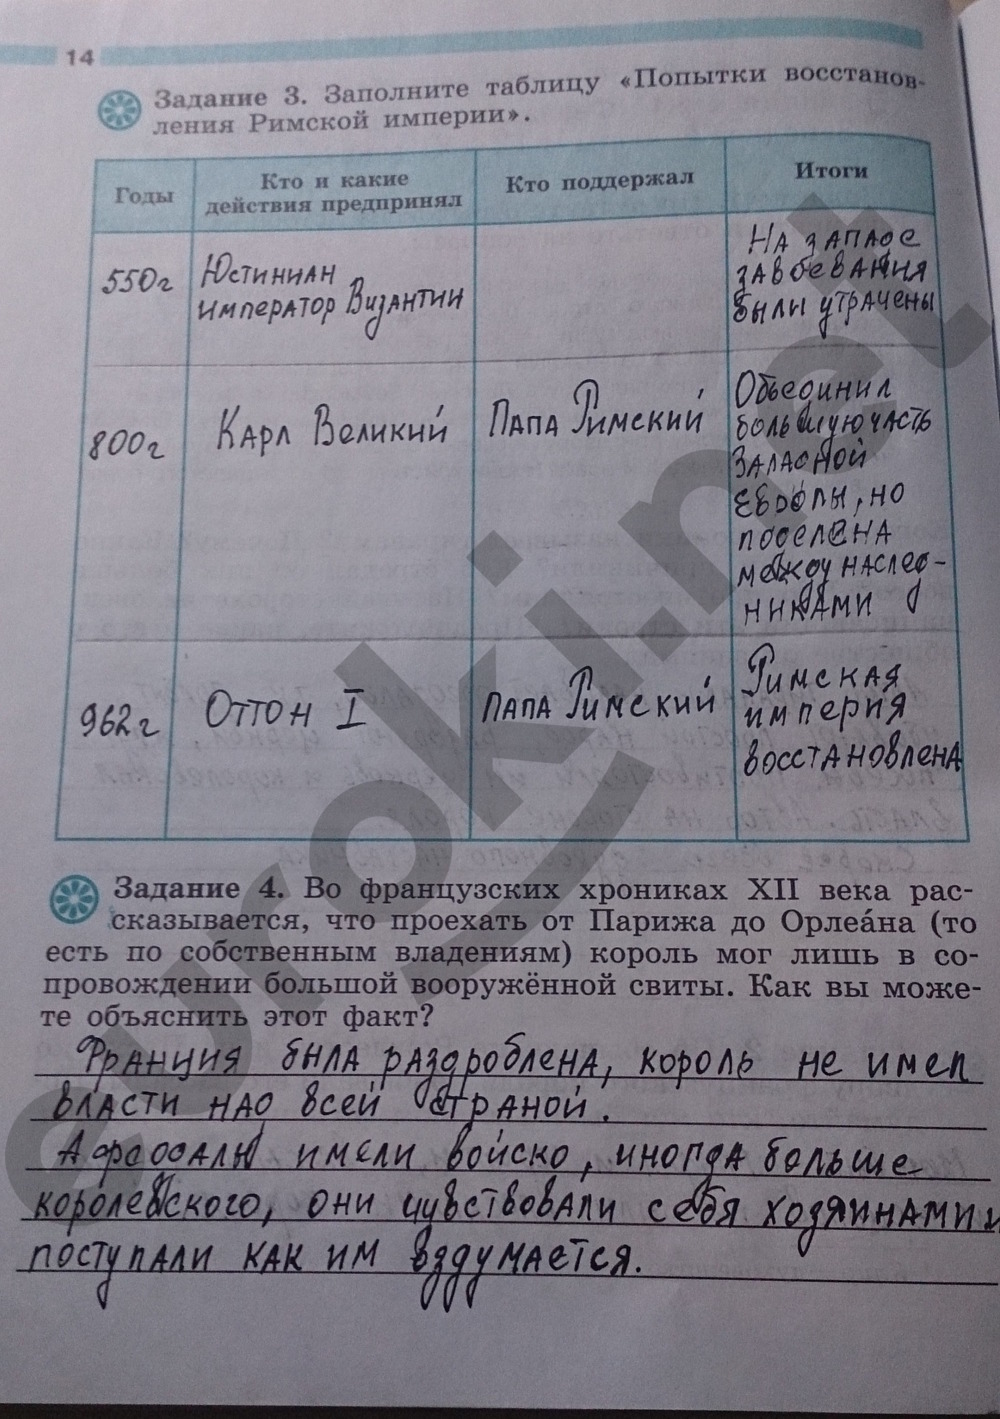 14
Задание 3. Заполните таблицу «Попытки восстанов-
ления Римской империи».
Годы
Кто и какие
действия предпринял
Кто поддержал
Итоги
550г
Юстиниан
император Византии
На западе
завоевания
были утрачены
800г
Карл Великий
Папа Римский
Объединил
большую часть
Западной
Европы, но
поделена
между наслед-
никами
962г
Оттон I
Папа Римский
Римская
империя
восстановлена
Задание 4. Во французских хрониках XII века рас-
сказывается, что проехать от Парижа до Орлеа́на (то
есть по собственным владениям) король мог лишь в со-
провождении большой вооружённой свиты. Как вы може-
те объяснить этот факт?
Франция была раздроблена, король не имел
власти над всей страной.
А феодалы имели войско, иногда больше
королевского, они чувствовали себя хозяинами и
поступали как им вздумается.
euroki.net